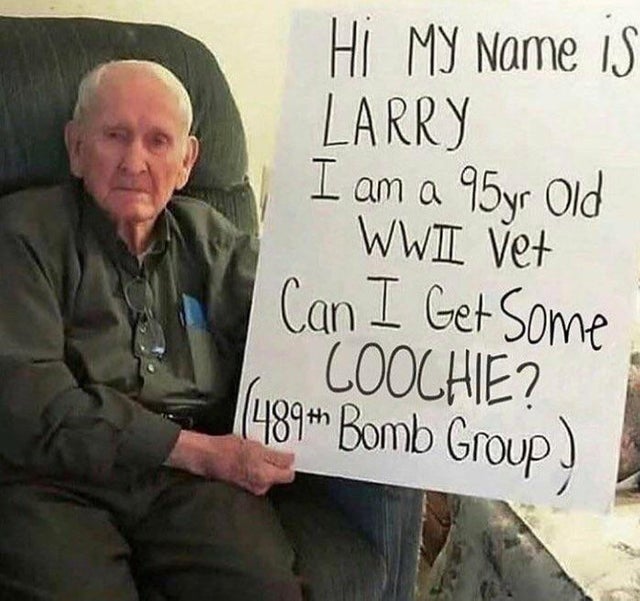 Hi My Name is
LARRY
I am a 95yr Old
WWII Vet
Can I Get Some
COOCHIE?
(489th Bomb Group)